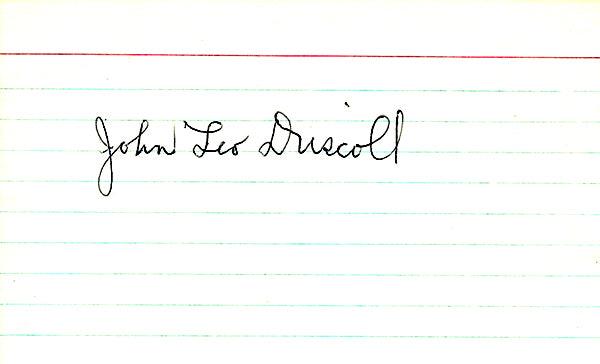 John Leo Driscoll